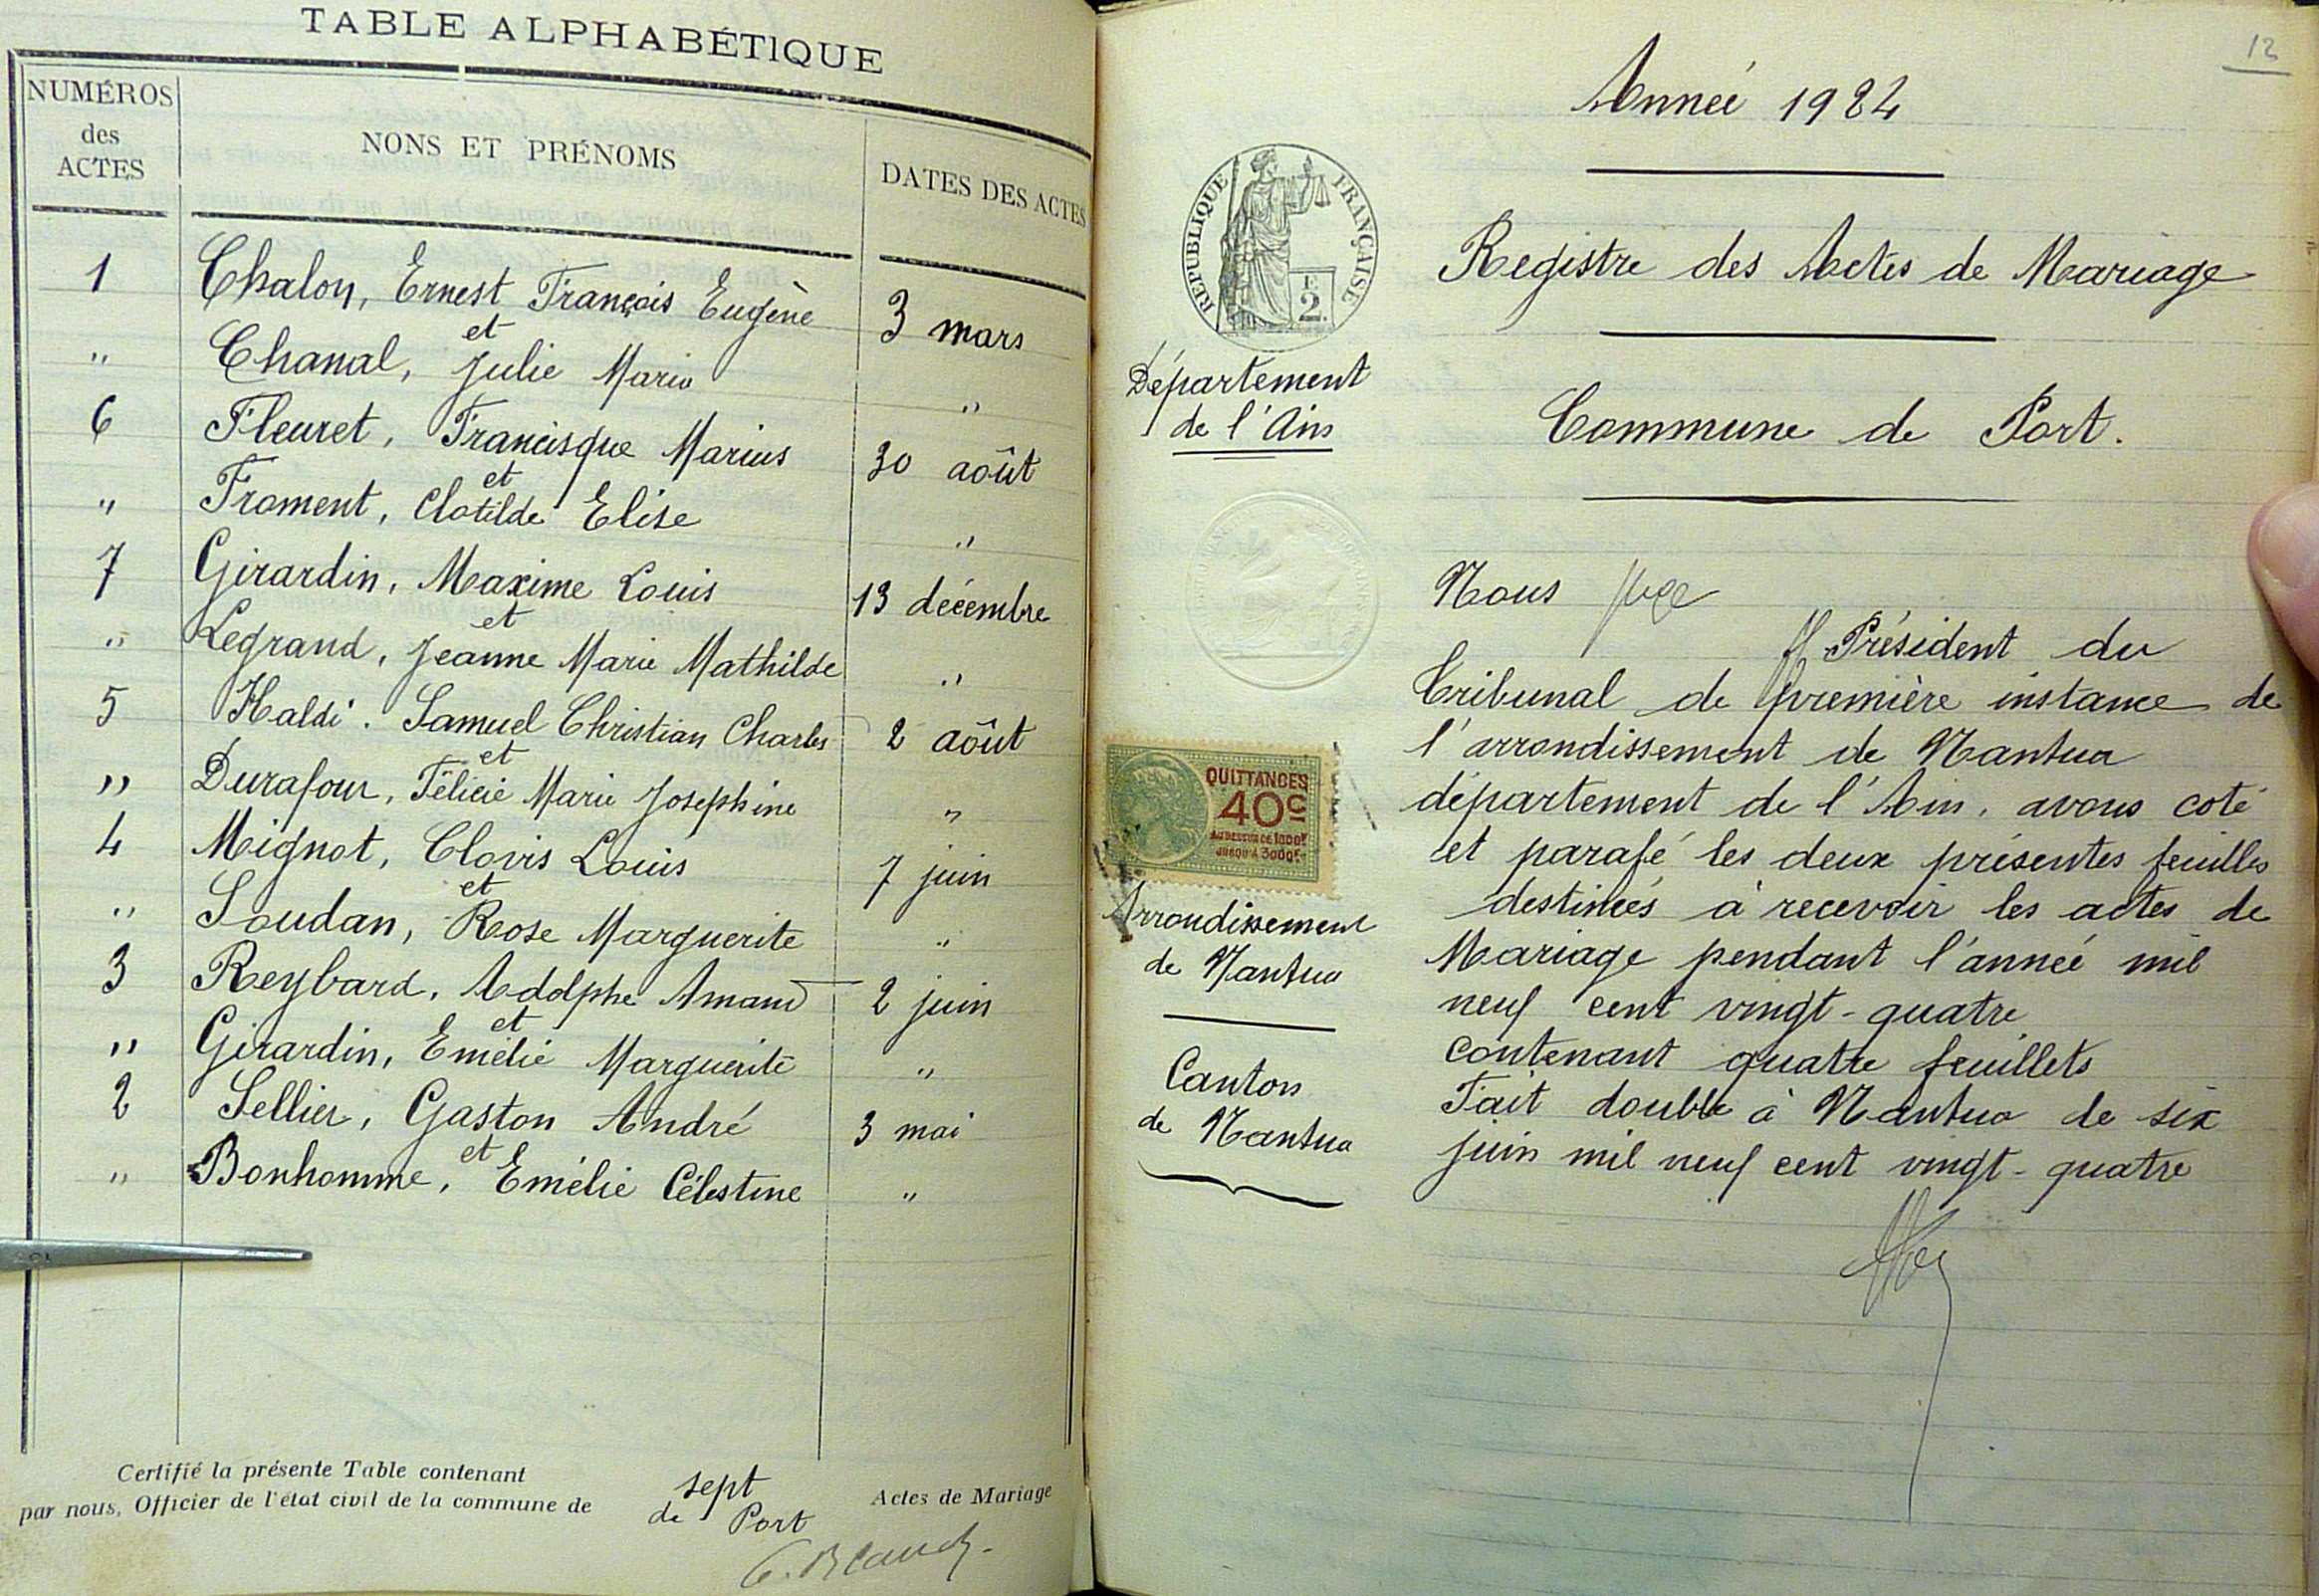 TABLE ALPHABÉTIQUE
NUMÉROS
des
ACTES
NONS ET PRÉNOMS
DATES DES ACTES
1 Chalon, Ernest François Eugène 3 mars
et
" Chanal, Julie Marie "
6 Fleuret, Francisque Marius 30 août
et
" Froment, Clotilde Elise "
7 Girardin, Maxime Louis 13 décembre
et
" Legrand, Jeanne Marie Mathilde "
5 Haldi. Samuel Christian Charles 2 août
et
" Durafour, Félicie Marie Josephine "
4 Mignot, Clovis Louis 7 juin
et
" Soudan, Rose Marguerite "
3 Reybard, Adolphe Amand 2 juin
et
" Girardin, Emélie Marguerite "
2 Sellier, Gaston André 3 mai
et
" Bonhomme, Emélie Célestine "
Certifié la présente Table contenant sept Actes de Mariage
par nous, Officier de l'état civil de la commune de de Port
12
Année 1924
REPUBLIQUE FRANÇAISE
2F.
Registre des Actes de Mariage
Département
de l'Ain
Commune de Port.
Nous
Président du
Tribunal de première instance de
l'arrondissement de Nantua
département de l'Ain, avons coté
et parafé les deux présentes feuilles
destinées à recevoir les actes de
Mariage pendant l'année mil
neuf cent vingt-quatre
contenant quatre feuillets
Fait double à Nantua de six
juin mil neuf cent vingt-quatre
QUITTANCES
40c
AU DESSUS DE 1000F
JUSQU'A 3000F
Arrondissement
de Nantua
Canton
de Nantua